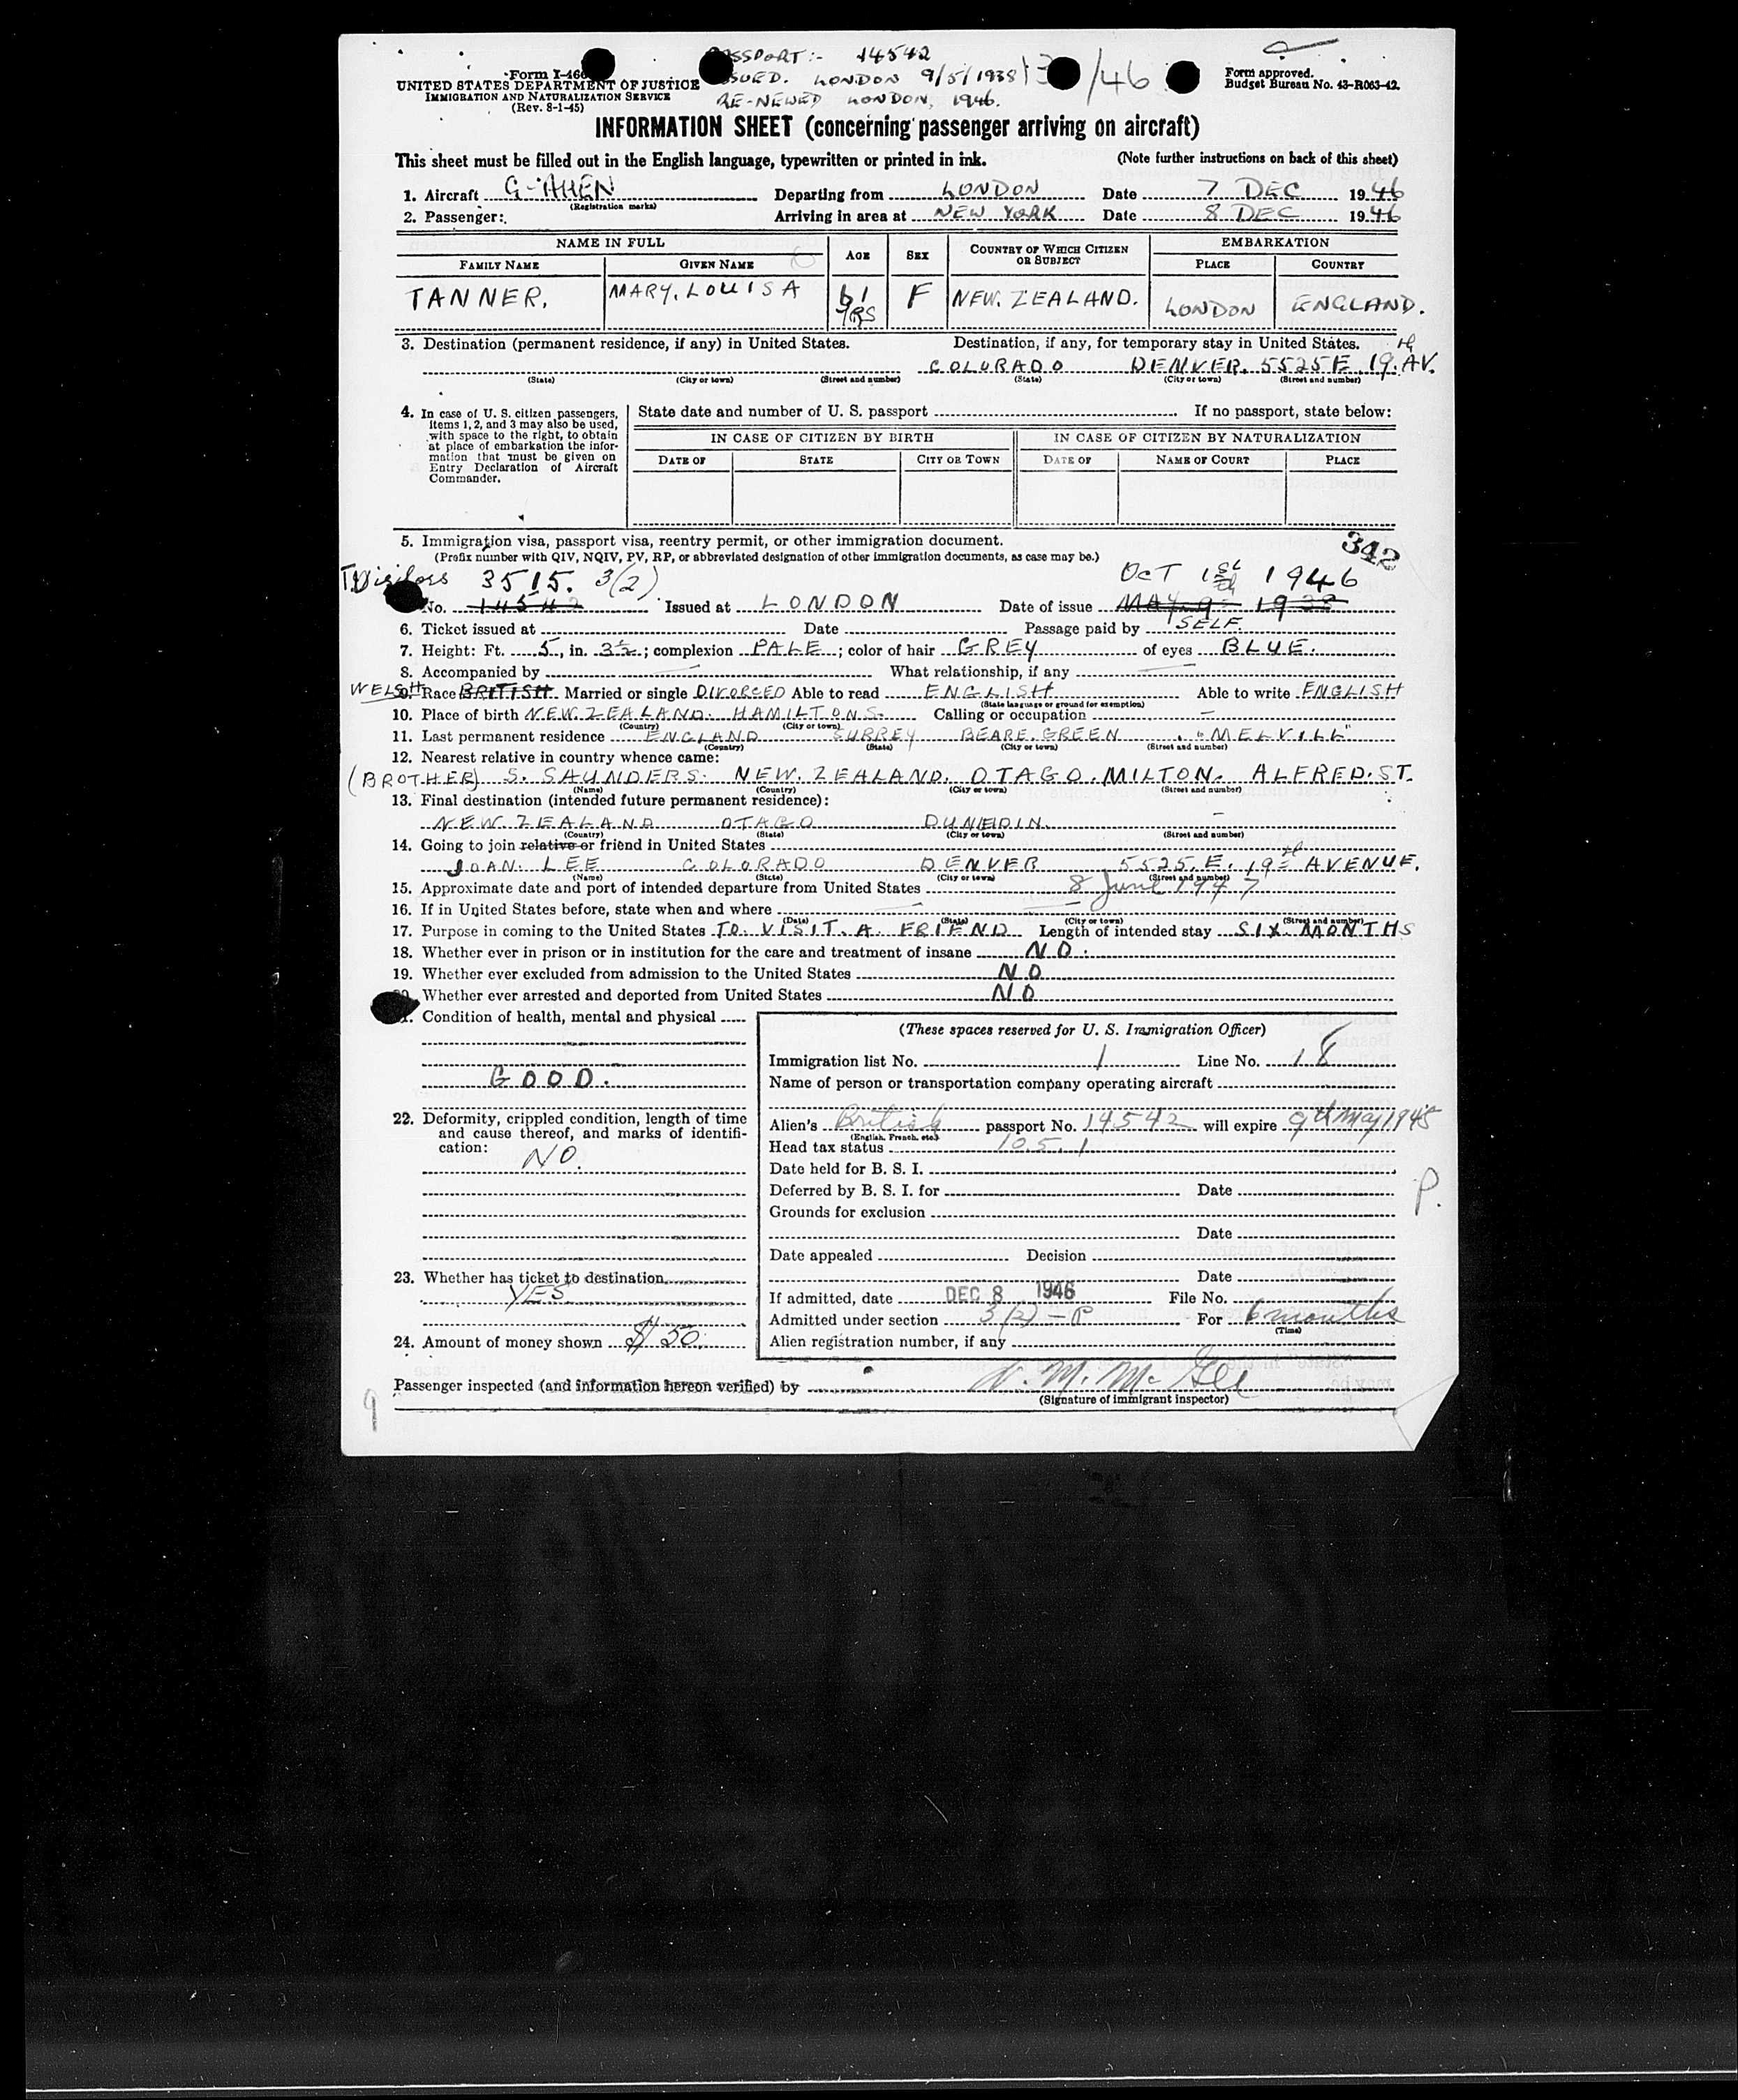 PASSPORT:- 14542
Form I-466
ISSUED. LONDON 9/5/1938 /46
Form approved.
UNITED STATES DEPARTMENT OF JUSTICE
Budget Bureau No. 43-R063-42.
IMMIGRATION AND NATURALIZATION SERVICE
RE-NEWED LONDON, 1946.
(Rev. 8-1-45)
INFORMATION SHEET (concerning passenger arriving on aircraft)
This sheet must be filled out in the English language, typewritten or printed in ink. (Note further instructions on back of this sheet)
1. Aircraft G-AHEN Departing from LONDON Date 7 DEC 1946
(Registration marks)
2. Passenger: Arriving in area at NEW YORK Date 8 DEC 1946
NAME IN FULL AGE SEX COUNTRY OF WHICH CITIZEN OR SUBJECT EMBARKATION
FAMILY NAME GIVEN NAME PLACE COUNTRY
TANNER. MARY. LOUISA 61 YRS F NEW. ZEALAND. LONDON ENGLAND.
3. Destination (permanent residence, if any) in United States. Destination, if any, for temporary stay in United States.
COLORADO DENVER. 5525 E. 19th AV.
(State) (City or town) (Street and number) (State) (City or town) (Street and number)
4. In case of U. S. citizen passengers, items 1, 2, and 3 may also be used, with space to the right, to obtain at place of embarkation the information that must be given on Entry Declaration of Aircraft Commander.
State date and number of U. S. passport If no passport, state below:
IN CASE OF CITIZEN BY BIRTH IN CASE OF CITIZEN BY NATURALIZATION
DATE OF STATE CITY OR TOWN DATE OF NAME OF COURT PLACE
5. Immigration visa, passport visa, reentry permit, or other immigration document. 342
(Prefix number with QIV, NQIV, PV, RP, or abbreviated designation of other immigration documents, as case may be.)
Visitors 3515. 3(2) OCT 1st 1946
No. 14542 Issued at LONDON Date of issue MAY. 9th 1938
6. Ticket issued at Date Passage paid by SELF.
7. Height: Ft. 5, in. 3½; complexion PALE; color of hair GREY of eyes BLUE.
8. Accompanied by — What relationship, if any —
WELSH 9. Race BRITISH. Married or single DIVORCED Able to read ENGLISH Able to write ENGLISH
(State language or ground for exemption)
10. Place of birth NEW ZEALAND. HAMILTONS. Calling or occupation —
(Country) (City or town)
11. Last permanent residence ENGLAND SURREY BEARE GREEN. "MELVILL"
(Country) (State) (City or town) (Street and number)
12. Nearest relative in country whence came:
(BROTHER) S. SAUNDERS. NEW. ZEALAND. OTAGO. MILTON. ALFRED. ST.
(Name) (Country) (City or town) (Street and number)
13. Final destination (intended future permanent residence):
NEW ZEALAND OTAGO DUNEDIN. —
(Country) (State) (City or town) (Street and number)
14. Going to join relative or friend in United States
JOAN. LEE COLORADO DENVER 5525. E. 19th AVENUE.
(Name) (State) (City or town) (Street and number)
15. Approximate date and port of intended departure from United States 8 June 1947
16. If in United States before, state when and where —
(Date) (State) (City or town) (Street and number)
17. Purpose in coming to the United States TO. VISIT. A. FRIEND Length of intended stay SIX MONTHS
18. Whether ever in prison or in institution for the care and treatment of insane NO.
19. Whether ever excluded from admission to the United States NO
Whether ever arrested and deported from United States NO
Condition of health, mental and physical
GOOD.
22. Deformity, crippled condition, length of time and cause thereof, and marks of identification:
NO.
23. Whether has ticket to destination
YES
24. Amount of money shown $ 50.
(These spaces reserved for U. S. Immigration Officer)
Immigration list No. 1 Line No. 18
Name of person or transportation company operating aircraft
Alien's British passport No. 14542 will expire 9th May 1948
(English, French, etc.)
Head tax status 105.1
Date held for B. S. I.
Deferred by B. S. I. for Date P.
Grounds for exclusion
Date
Date appealed Decision
Date
If admitted, date DEC 8 1946 File No.
Admitted under section 3(2) - P For 6 months
(Time)
Alien registration number, if any
Passenger inspected (and information hereon verified) by
(Signature of immigrant inspector)
9